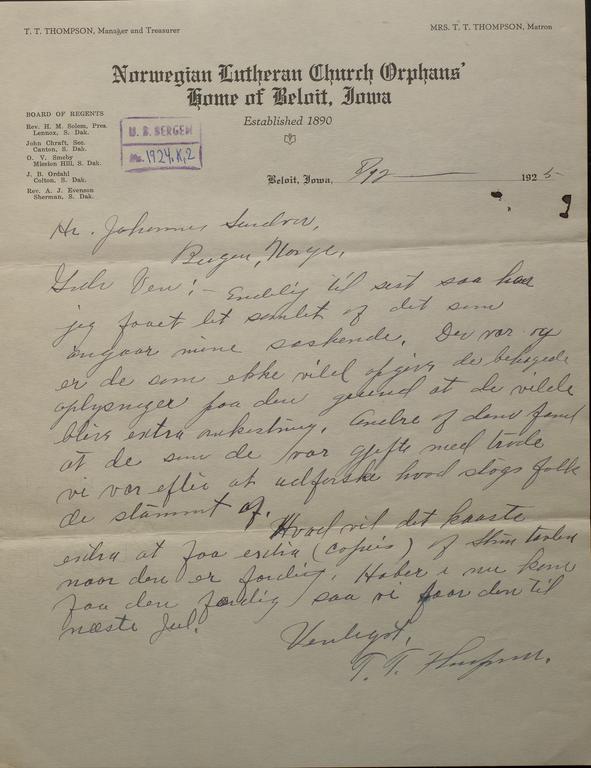 T. T. THOMPSON, Manager and Treasurer
MRS. T. T. THOMPSON, Matron
Norwegian Lutheran Church Orphans'
Home of Beloit, Iowa
Established 1890
BOARD OF REGENTS
Rev. H. M. Solem, Pres.
Lennox, S. Dak.
John Chraft, Sec.
Canton, S. Dak.
O. V. Smeby
Mission Hill, S. Dak.
J. B. Ordahl
Colton, S. Dak.
Rev. A. J. Evenson
Sherman, S. Dak.
U. B. BERGEN
Ms. 1924, K, 2
Beloit, Iowa, 8/12 1925
Hr. Johannes Sandven,
Bergen, Norge.
Gode Ven! – Endelig til sist saa har
jeg faaet let samlet af det som
angaar mine søskende. Der var og
er de som ikke vilde opgive de behøgede
oplysninger paa den grund at de vilde
blive extra omkostning. Andre af dem fand
at de som de var gifte med trode
vi var efter at udforske hvad slags folk
de stammt af. Hvad vil det kaaste
extra at faa extra (copies) af Stamtavlen
naar den er færdig. Haber i nu kom
faa den færdig saa vi faar den til
næste Jul.
Venligst,
T. T. Thompson.